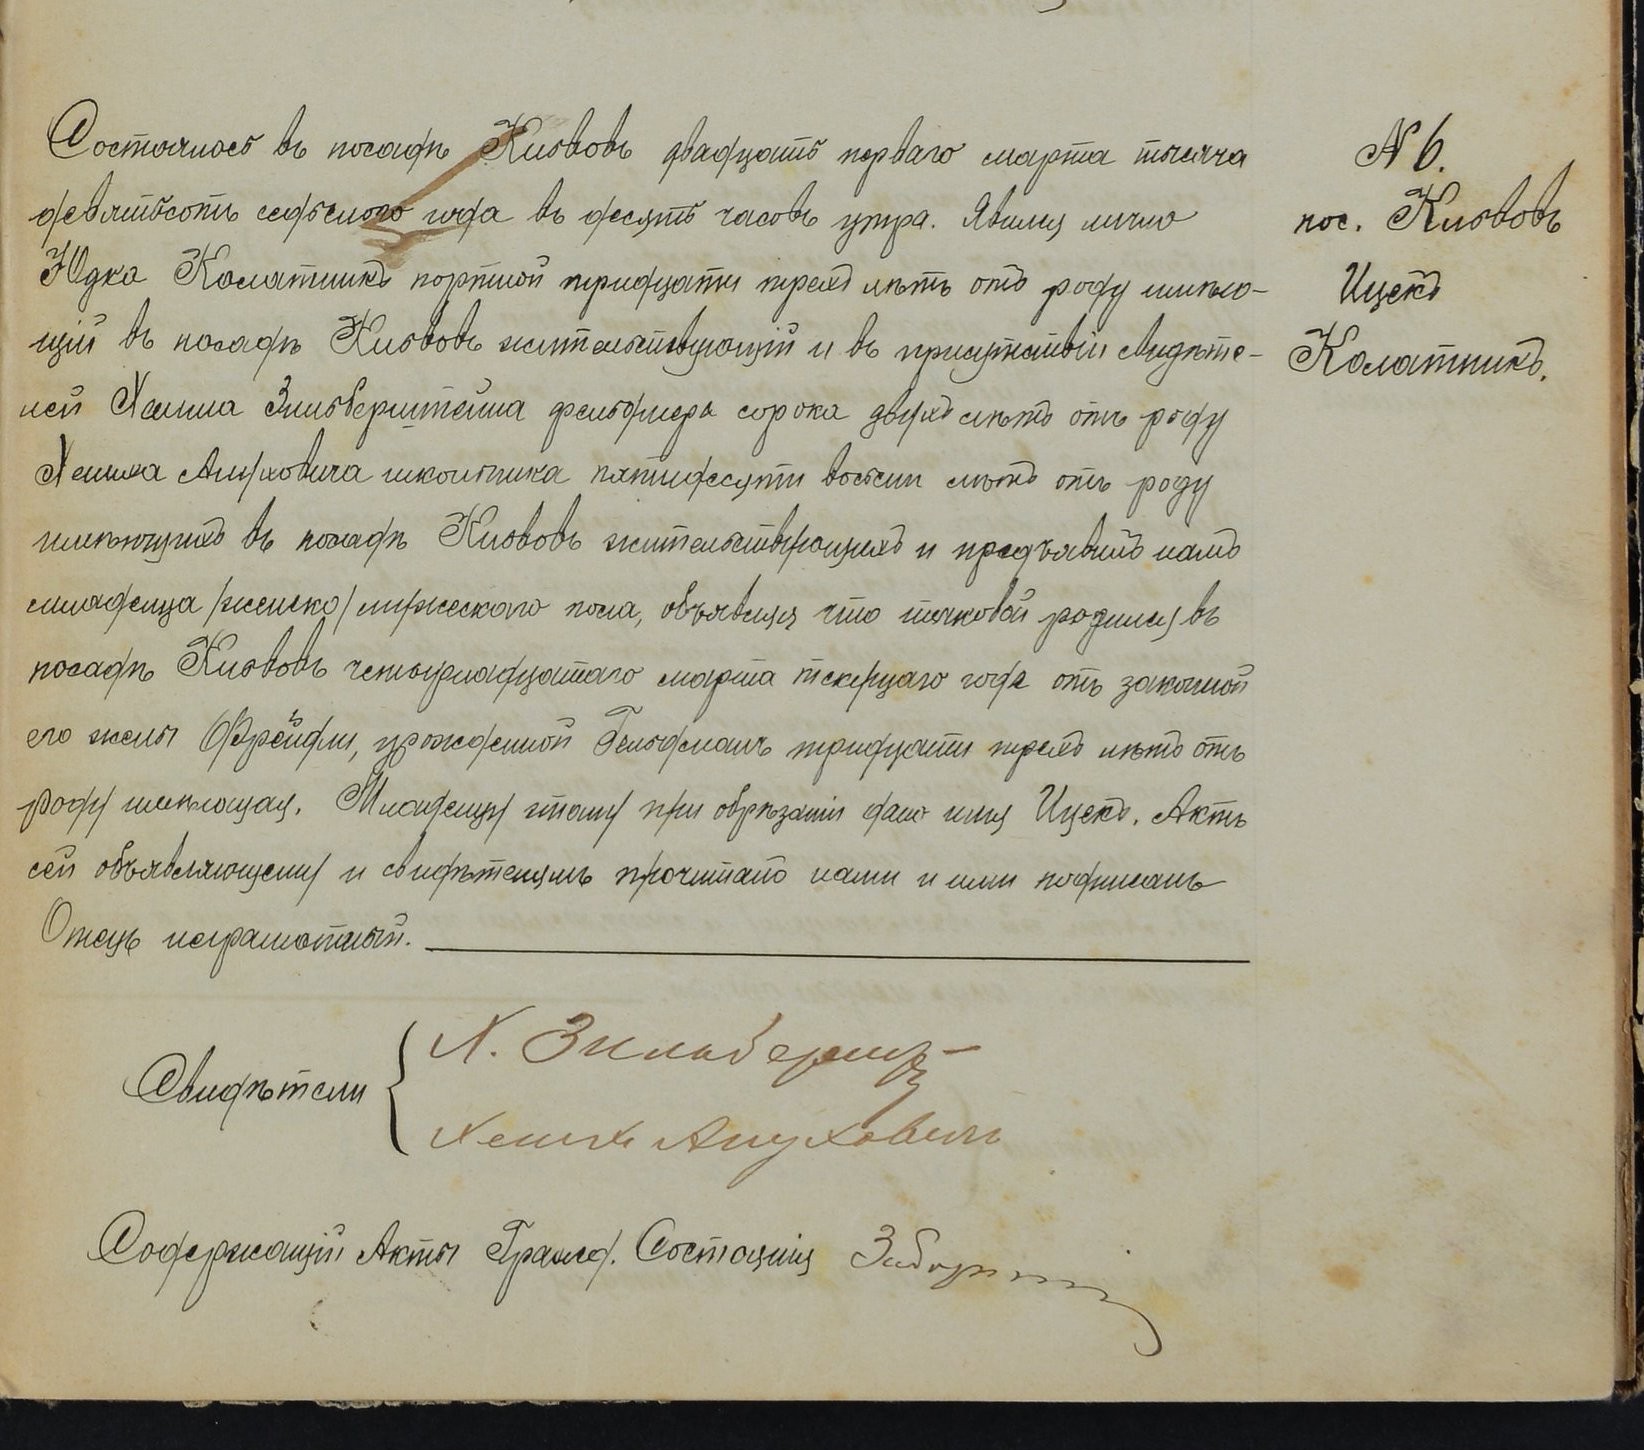 Состоялось въ посадѣ Кловвовъ двадцать перваго марта тысяча
девятьсотъ седьмого года въ десять часовъ утра. Явился лично
Юдка Калатникъ портной тридцати трехъ лѣтъ отъ роду имѣю-
щій въ посадѣ жительствующій и въ присутствіи свидѣте-
лей Хаима Зильберштейна фельдшера сорока двухъ лѣтъ отъ роду
Хениха школьника пятидесяти восьми лѣтъ отъ роду
имѣющихъ въ посадѣ жительствующихъ и предъявилъ намъ
младенца /женско/ мужескаго пола, объявляя что таковой родился въ
посадѣ четырнадцатаго марта текущаго года отъ законной
его жены Фрейдли, урожденной Гельдманъ тридцати трехъ лѣтъ отъ
роду имѣющая. Младенцу этому при обрѣзаніи дано имя Ицекъ. Актъ
сей объявляющему и свидѣтелямъ прочитанъ нами и ими подписанъ
Отецъ неграмотный.
Свидѣтели
Х. Зильберш
Хенихъ
Содержащій Акты Гражд. Состоянія
N 6.
пос.
Ицекъ
Калатникъ.